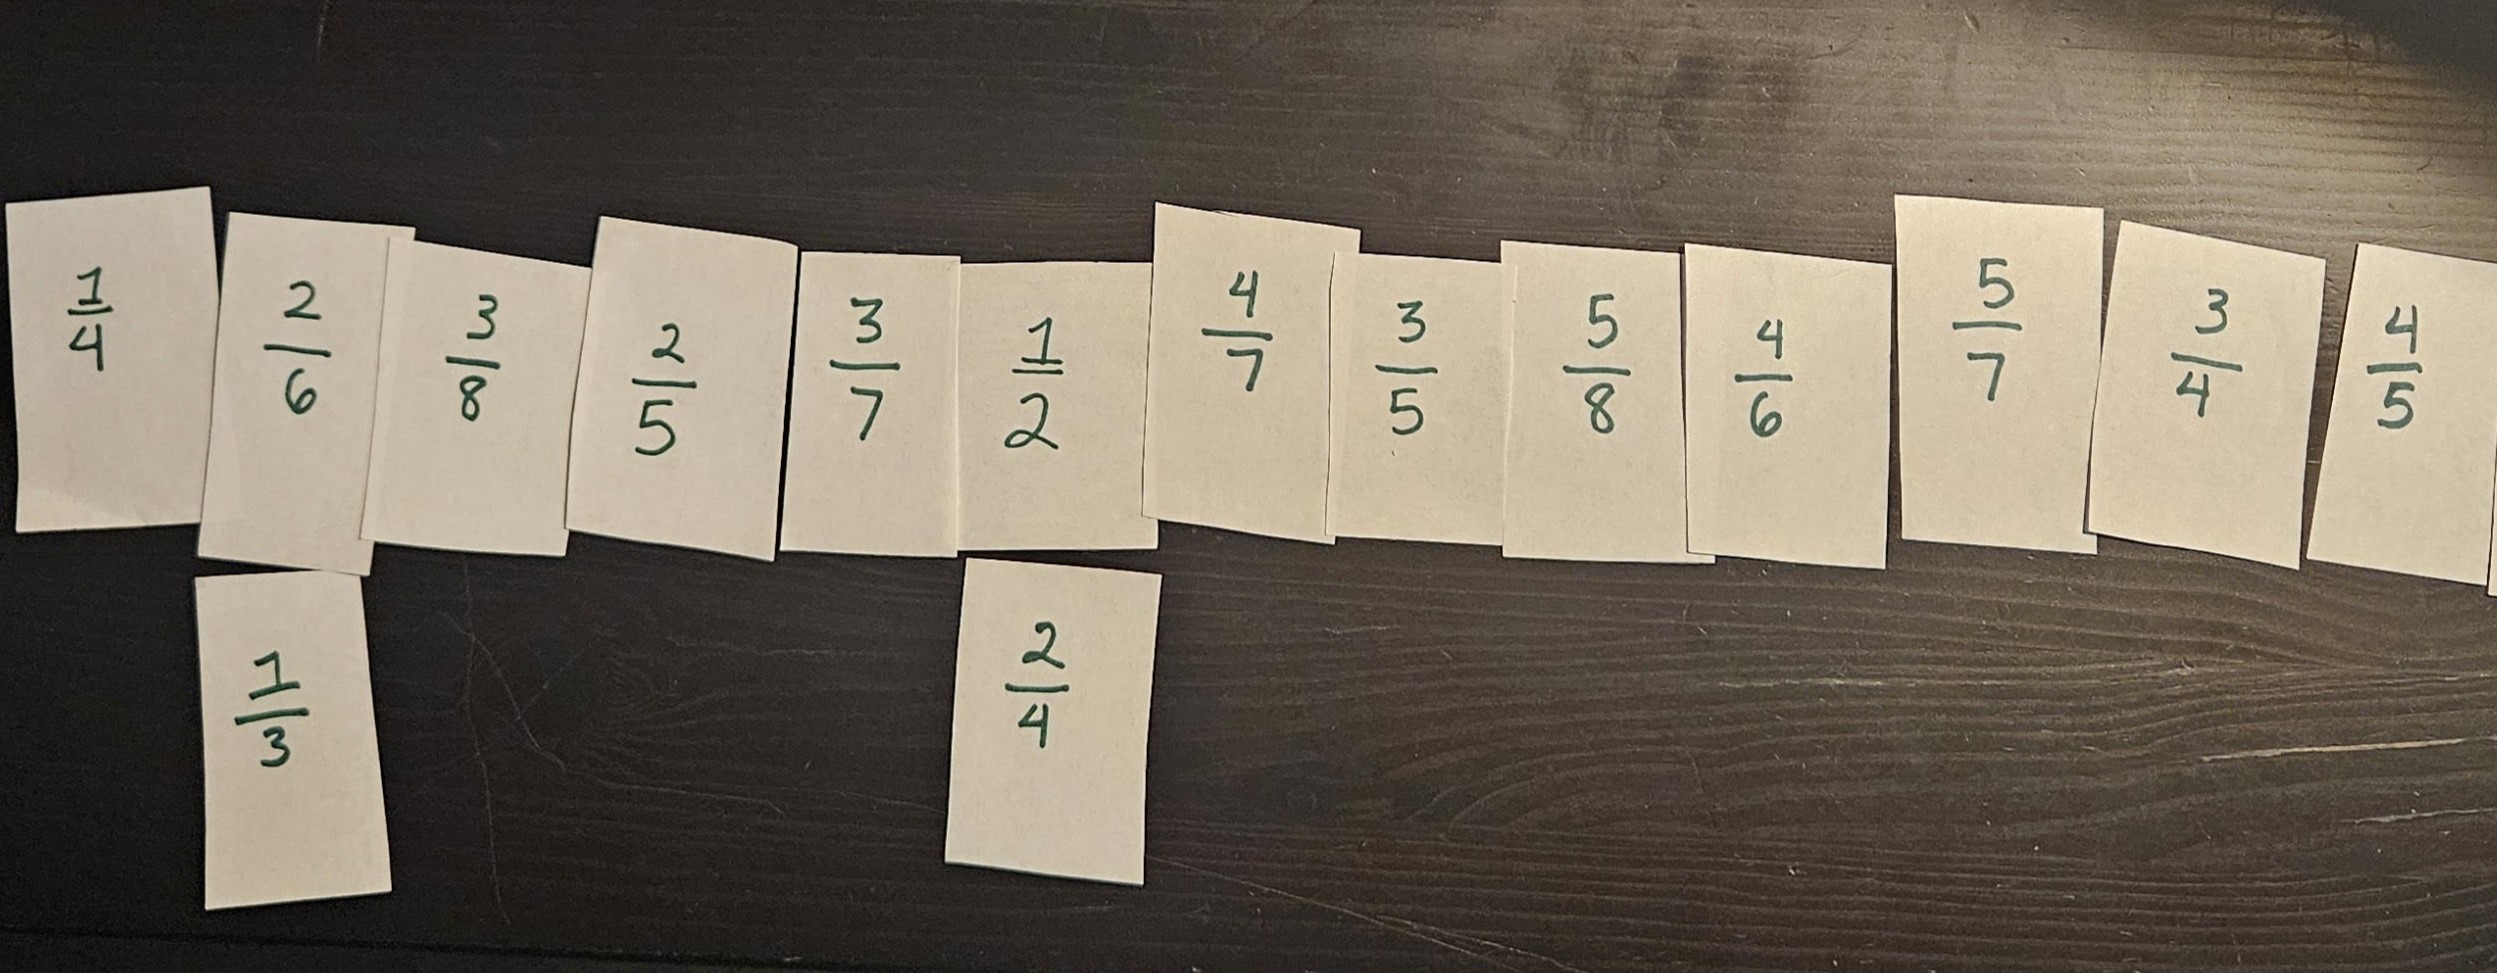 1/4 2/6 3/8 2/5 3/7 1/2 4/7 3/5 5/8 4/6 5/7 3/4 4/5
1/3 2/4